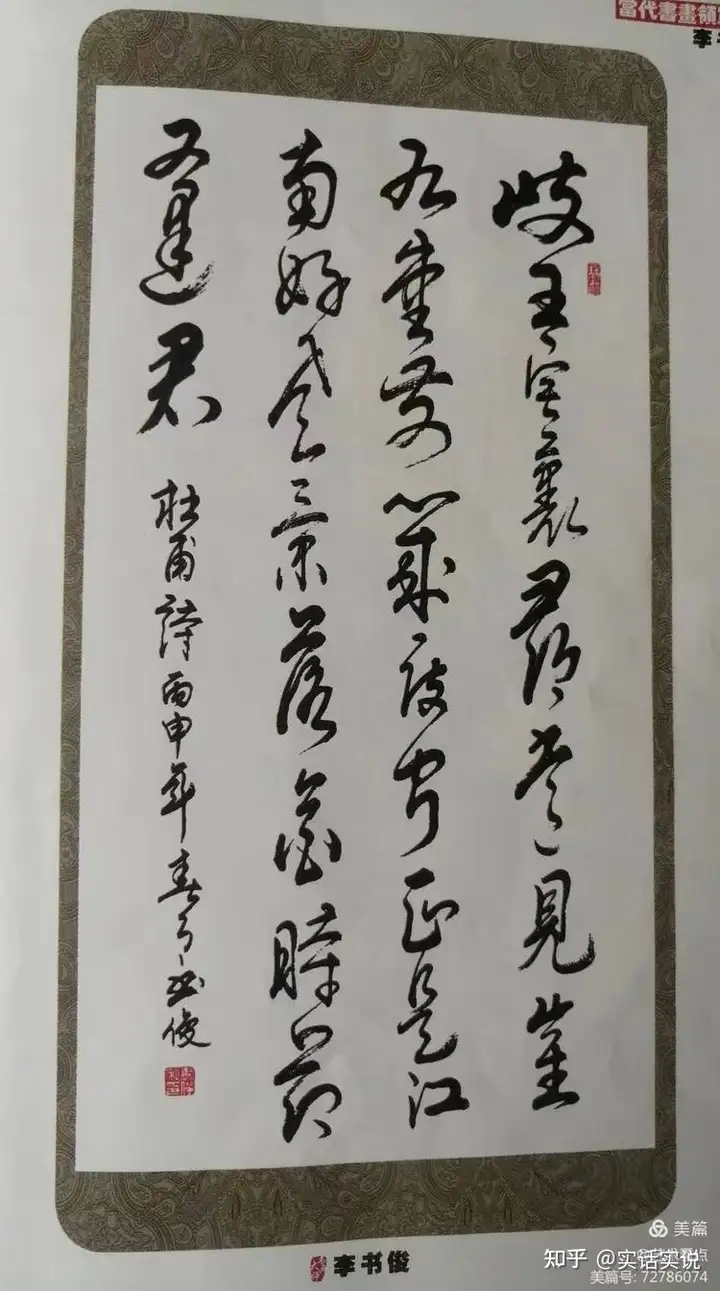 當代書畫領
李
岐王宅裏尋常見崔
九堂前幾度聞正是江
南好風景落花時節
又逢君
杜甫詩丙申年春月书俊
李书俊
美篇
知乎 @实话实说
美篇号: 72786074